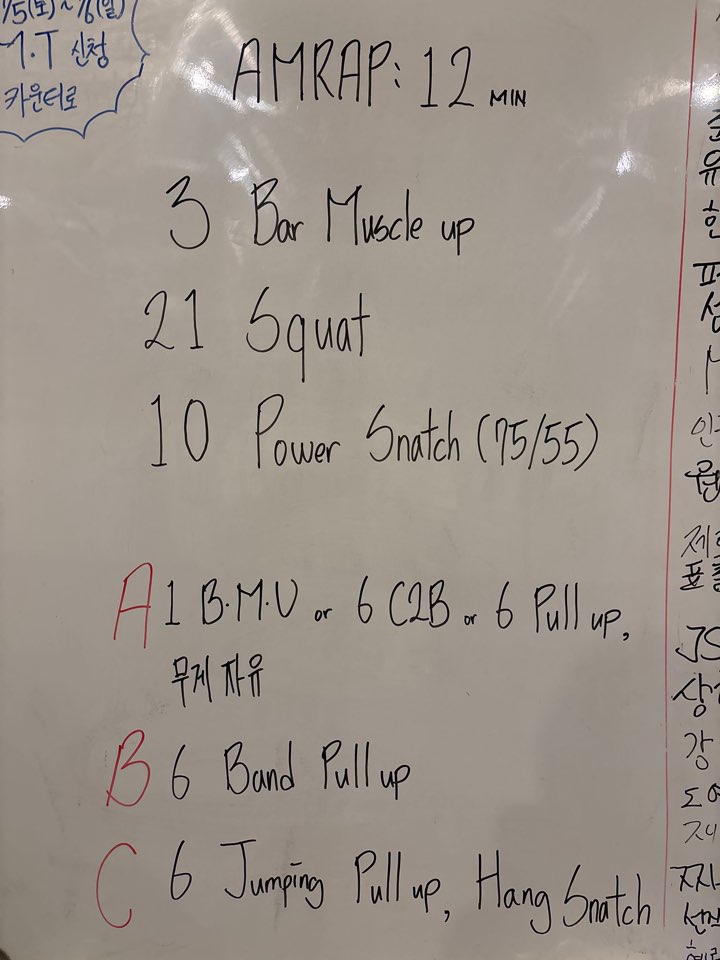 1/5(토)~/6(일)
M.T 신청
카운터로
AMRAP: 12 MIN
3 Bar Muscle up
21 Squat
10 Power Snatch (75/55)
A 1 B.M.U or 6 C2B or 6 Pull up,
무게 자유
B 6 Band Pull up
C 6 Jumping Pull up, Hang Snatch
유
한
인
제
JS
강